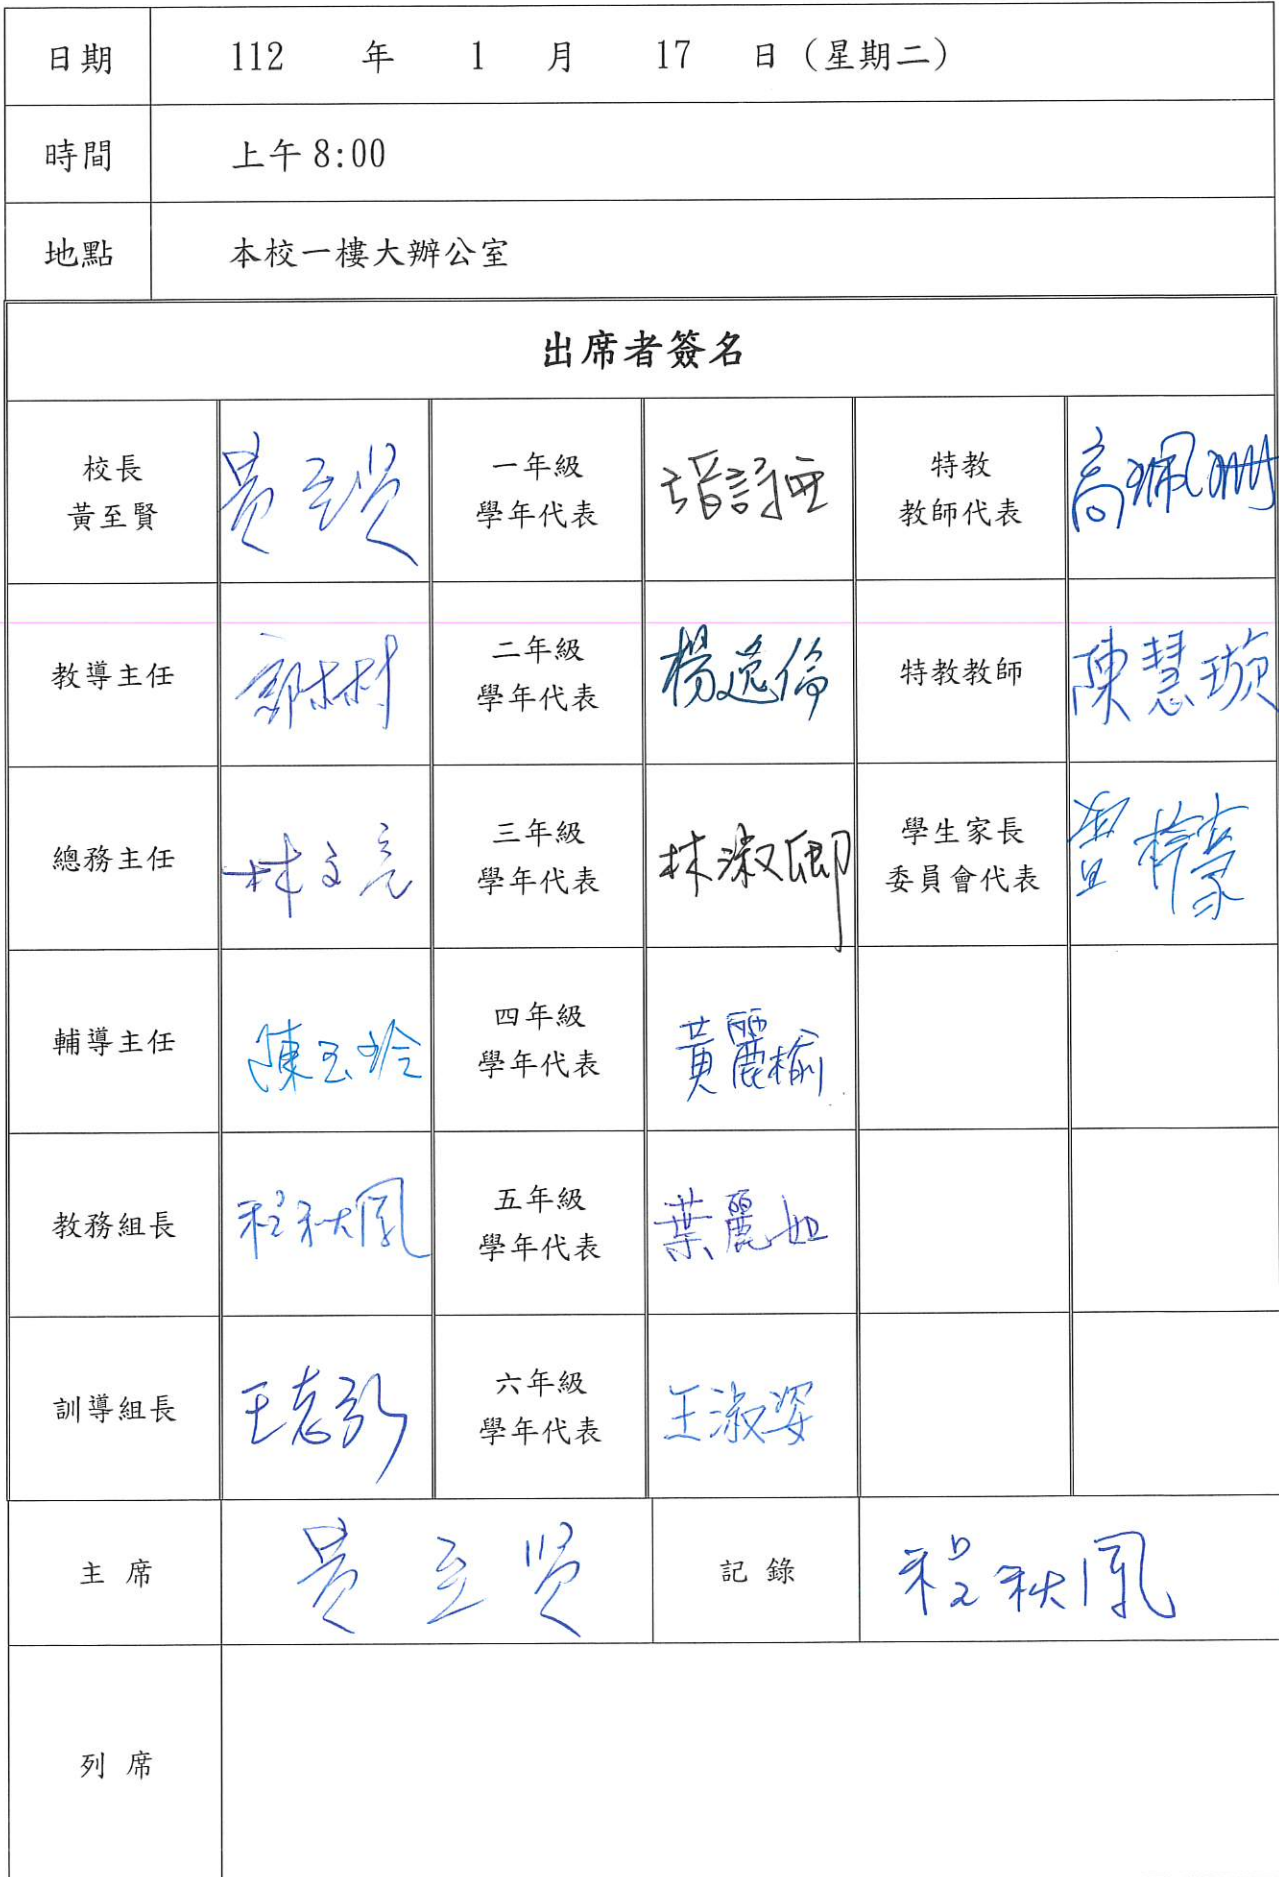 日期 112 年 1 月 17 日（星期二）
時間 上午 8:00
地點 本校一樓大辦公室
出席者簽名
校長
黃至賢
黃至賢
一年級
學年代表
特教
教師代表
高珮珊
教導主任
二年級
學年代表
楊逸倫
特教教師
陳慧璇
總務主任
林文亮
三年級
學年代表
林淑卿
學生家長
委員會代表
輔導主任
陳玉玲
四年級
學年代表
黃麗榆
教務組長
程秋鳳
五年級
學年代表
葉麗如
訓導組長
王志弘
六年級
學年代表
王淑姿
主席 黃至賢 記錄 程秋鳳
列席